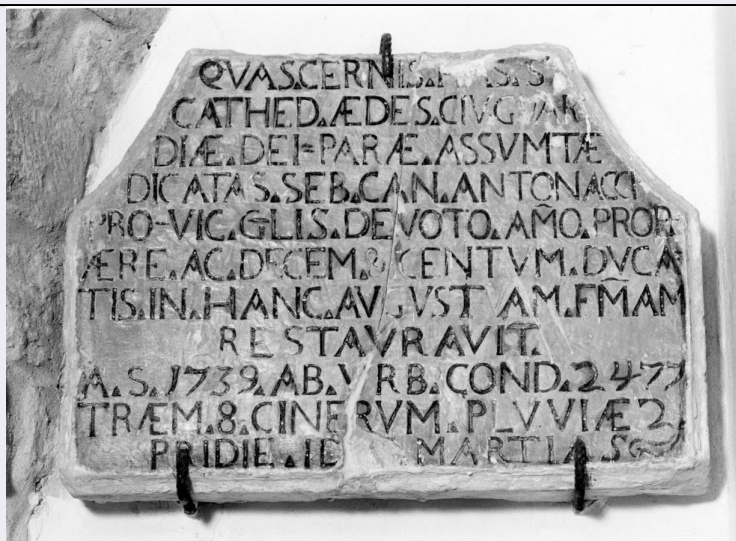 QVAS.CERNIS.
CATHED.ÆDES.CIV
DIÆ.DEI=PARÆ.ASSVMTÆ
DICATAS.SEB.CAN.ANTONACCI
PRO-VIC.GLIS.DEVOTO.AM̃O.PROP.
ÆRE.AC.DECEM.&.CENTVM.DVCA
TIS.IN.HANC.AVGVSTAM.FM̃AM
RESTAVRAVIT.
A.S.1739.AB.VRB.COND.2477
TRÆM.8.CINERVM.PLVVIÆ 2
PRIDIE.ID MARTIAS